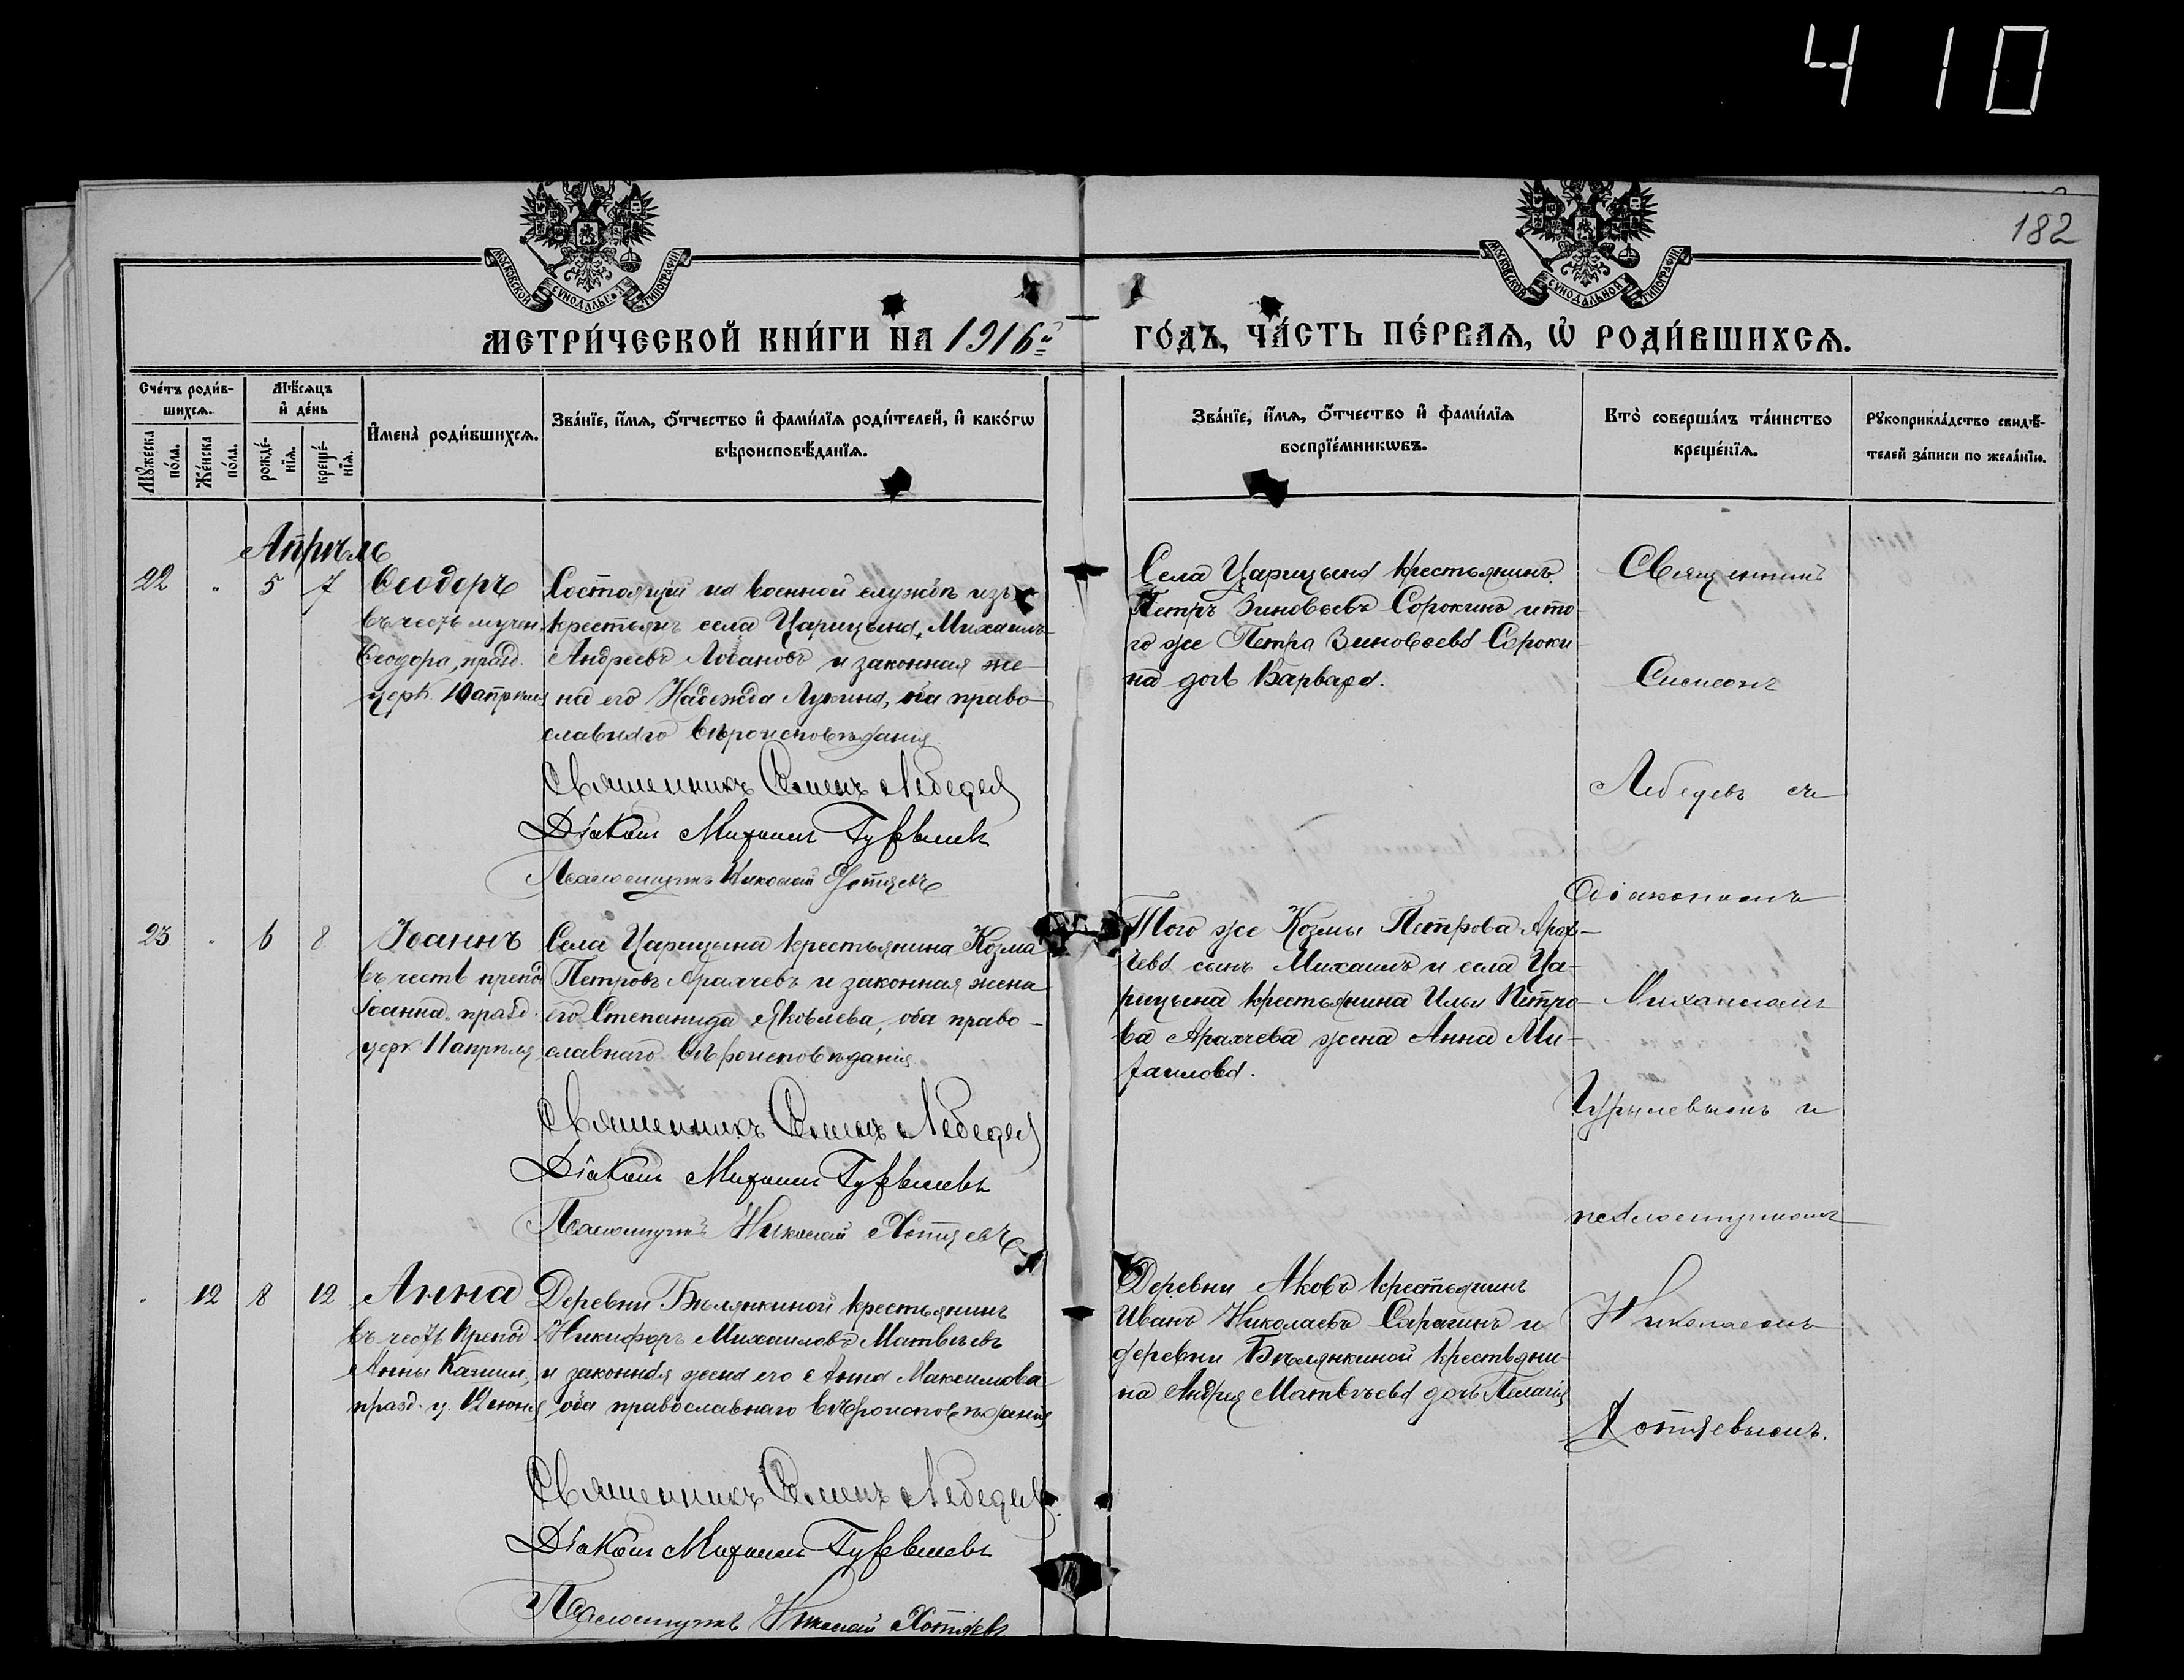 4 10
182
МОСКОВСКОЙ СѴНОДАЛЬНОЙ ТИПОГРАФІИ
МОСКОВСКОЙ СѴНОДАЛЬНОЙ ТИПОГРАФІИ
МЕТРИ́ЧЕСКОЙ КНИ́ГИ НА 1916й ГО́ДЪ, ЧА́СТЬ ПЕ́РВАЯ, Ѡ РОДИ́ВШИХСЯ.
Сче́тъ роди́в-
шихся.
Мꙋ́жеска по́ла.
Же́нска по́ла.
Мѣ́сяцъ и҆ де́нь
рожде́-
нїя.
креще́-
нїя.
И҆мена̀ роди́вшихся.
Зва́нїе, и҆́мя, ѻ҆́тчество и҆ фами́лїя роди́телей, и҆ како́гѡ
вѣроисповѣ́данїя.
Зва́нїе, и҆́мя, ѻ҆́тчество и҆ фами́лїя
воспрїе́мникѡвъ.
Кто̀ соверша́лъ та́инство
креще́нїя.
Рꙋкоприкла́дство свидѣ́-
телей за́писи по жела́нїю.
Апрѣль
22 " 5 7
Ѳеодоръ
въ честь мучен.
Ѳеодора, празд.
церк. 10 апрѣля
Состоящій на военной службѣ изъ
крестьянъ села Царицына, Михаилъ
Андреевъ Лобановъ и законная же-
на его Надежда Лукина, оба право-
славнаго вѣроисповѣданія
Священникъ Симеонъ Лебедев
Діаконъ Михаилъ Гурылевъ
Псаломщикъ Николай Хотяевъ
Села Царицына крестьянинъ
Петръ Зиновьевъ Сорокинъ и то-
го же Петра Зиновьева Сороки-
на дочь Варвара.
Священникъ
Симеонъ
Лебедевъ съ
діакономъ
Михаиломъ
Гурылевымъ и
псаломщикомъ
Николаемъ
Хотяевымъ.
23 " 6 8
Іоаннъ
въ честь препод
Іоанна, празд.
церк 11 апрѣля
Села Царицына крестьянина Козма
Петровъ Арапчевъ и законная жена
его Степанида Яковлева, оба право-
славнаго вѣроисповѣданія
Священникъ Симеонъ Лебедев
Діаконъ Михаилъ Гурылевъ
Псаломщикъ Николай Хотяевъ
Того же Козмы Петрова Арап-
чева сынъ Михаилъ и села Ца-
рицына крестьянина Ильи Петро-
ва Арапчева жена Анна Ми-
хаилова.
" 12 8 12
Анна
въ честь препод
Анны Кашин.,
празд. ц. 12 іюня
Деревни Бѣлянкиной крестьянинъ
Никифоръ Михаиловъ Матвѣевъ
и законная жена его Анна Максимова
оба православнаго вѣроисповѣданія
Священникъ Симеонъ Лебедев.
Діаконъ Михаилъ Гурылевъ
Псаломщикъ Николай Хотяевъ
Деревни Аковъ крестьянинъ
Иванъ Николаевъ Сарагинъ и
деревни Бѣлянкиной крестьяни-
на Андрея Матвѣева дочь Пелагія